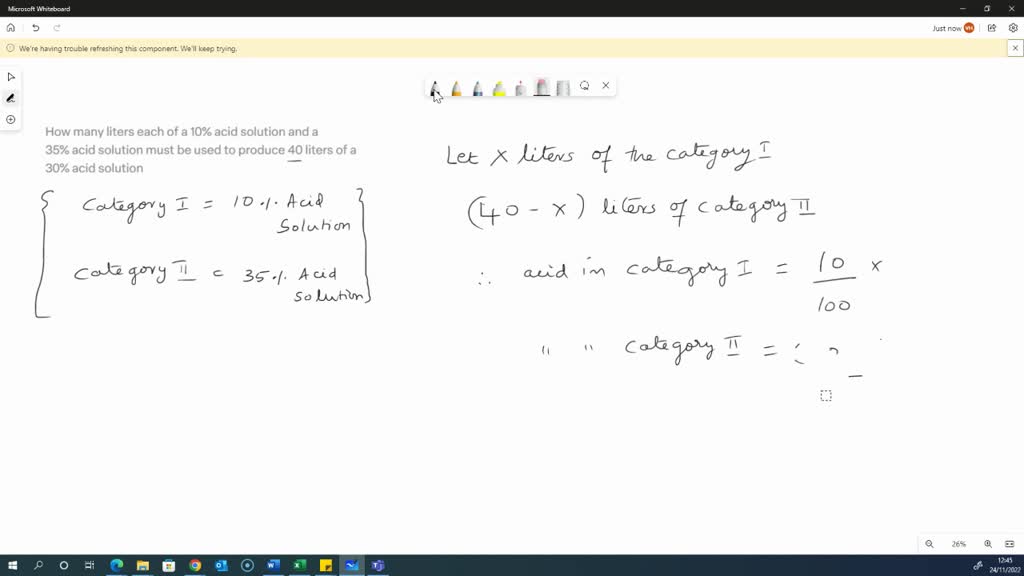 Microsoft Whiteboard
Just now VH
We're having trouble refreshing this component. We'll keep trying.
How many liters each of a 10% acid solution and a
35% acid solution must be used to produce 40 liters of a
30% acid solution
Category I = 10 % Acid
Solution
Category II = 35 % Acid
Solution
Let x liters of the category I
(40 - x) liters of category II
∴ acid in category I = 10/100 x
" " category II =
26%
12:45
24/11/2022